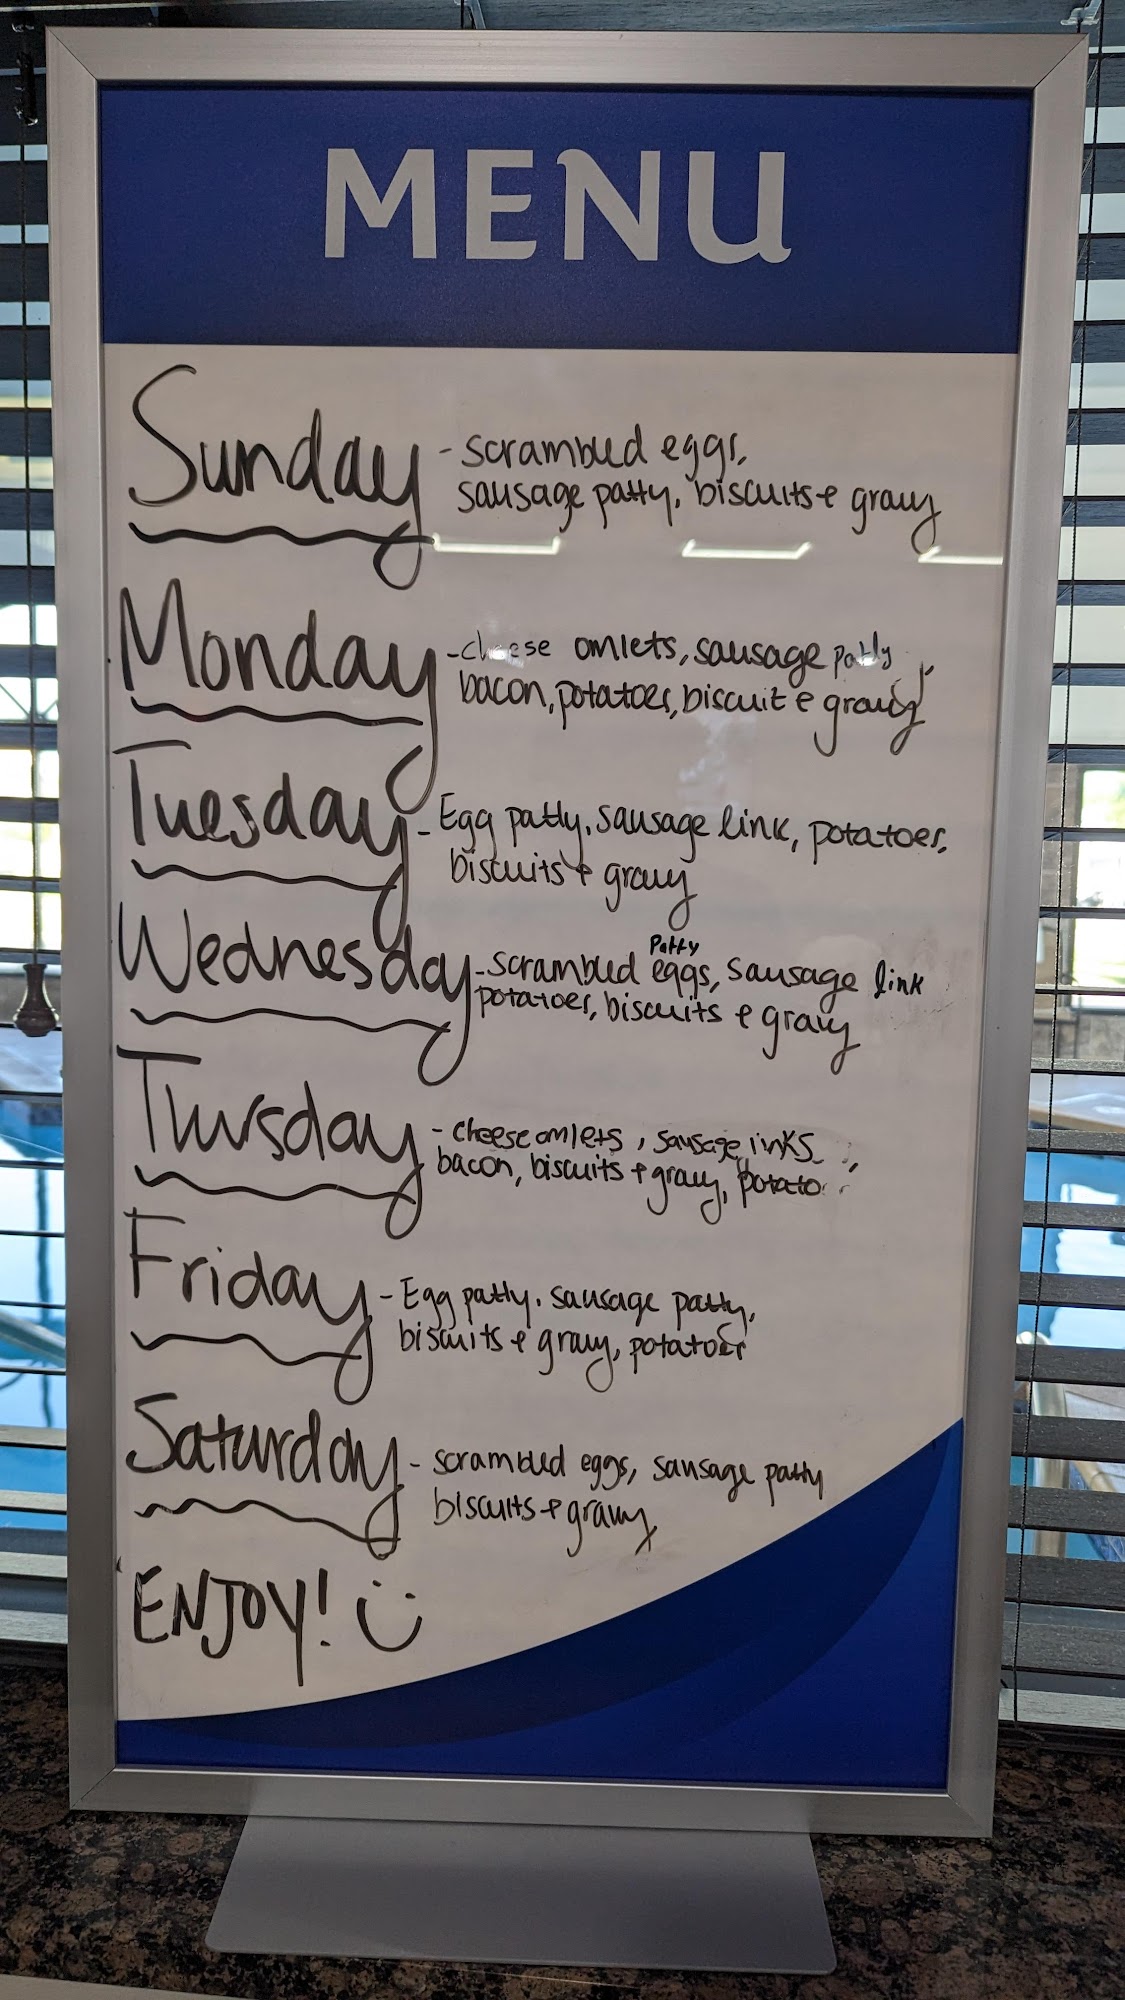 MENU
Sunday - scrambled eggs,
sausage patty, biscuits & gravy
Monday - cheese omlets, sausage patty,
bacon, potatoes, biscuit & gravy
Tuesday - Egg patty, sausage link, potatoes,
biscuits & gravy
Patty
Wednesday - scrambled eggs, sausage link
potatoes, biscuits & gravy
Thursday - cheese omlets, sausage links,
bacon, biscuits & gravy, potato
Friday - Egg patty, sausage patty,
biscuits & gravy, potatoes
Saturday - scrambled eggs, sausage patty
biscuits & gravy
ENJOY! :)